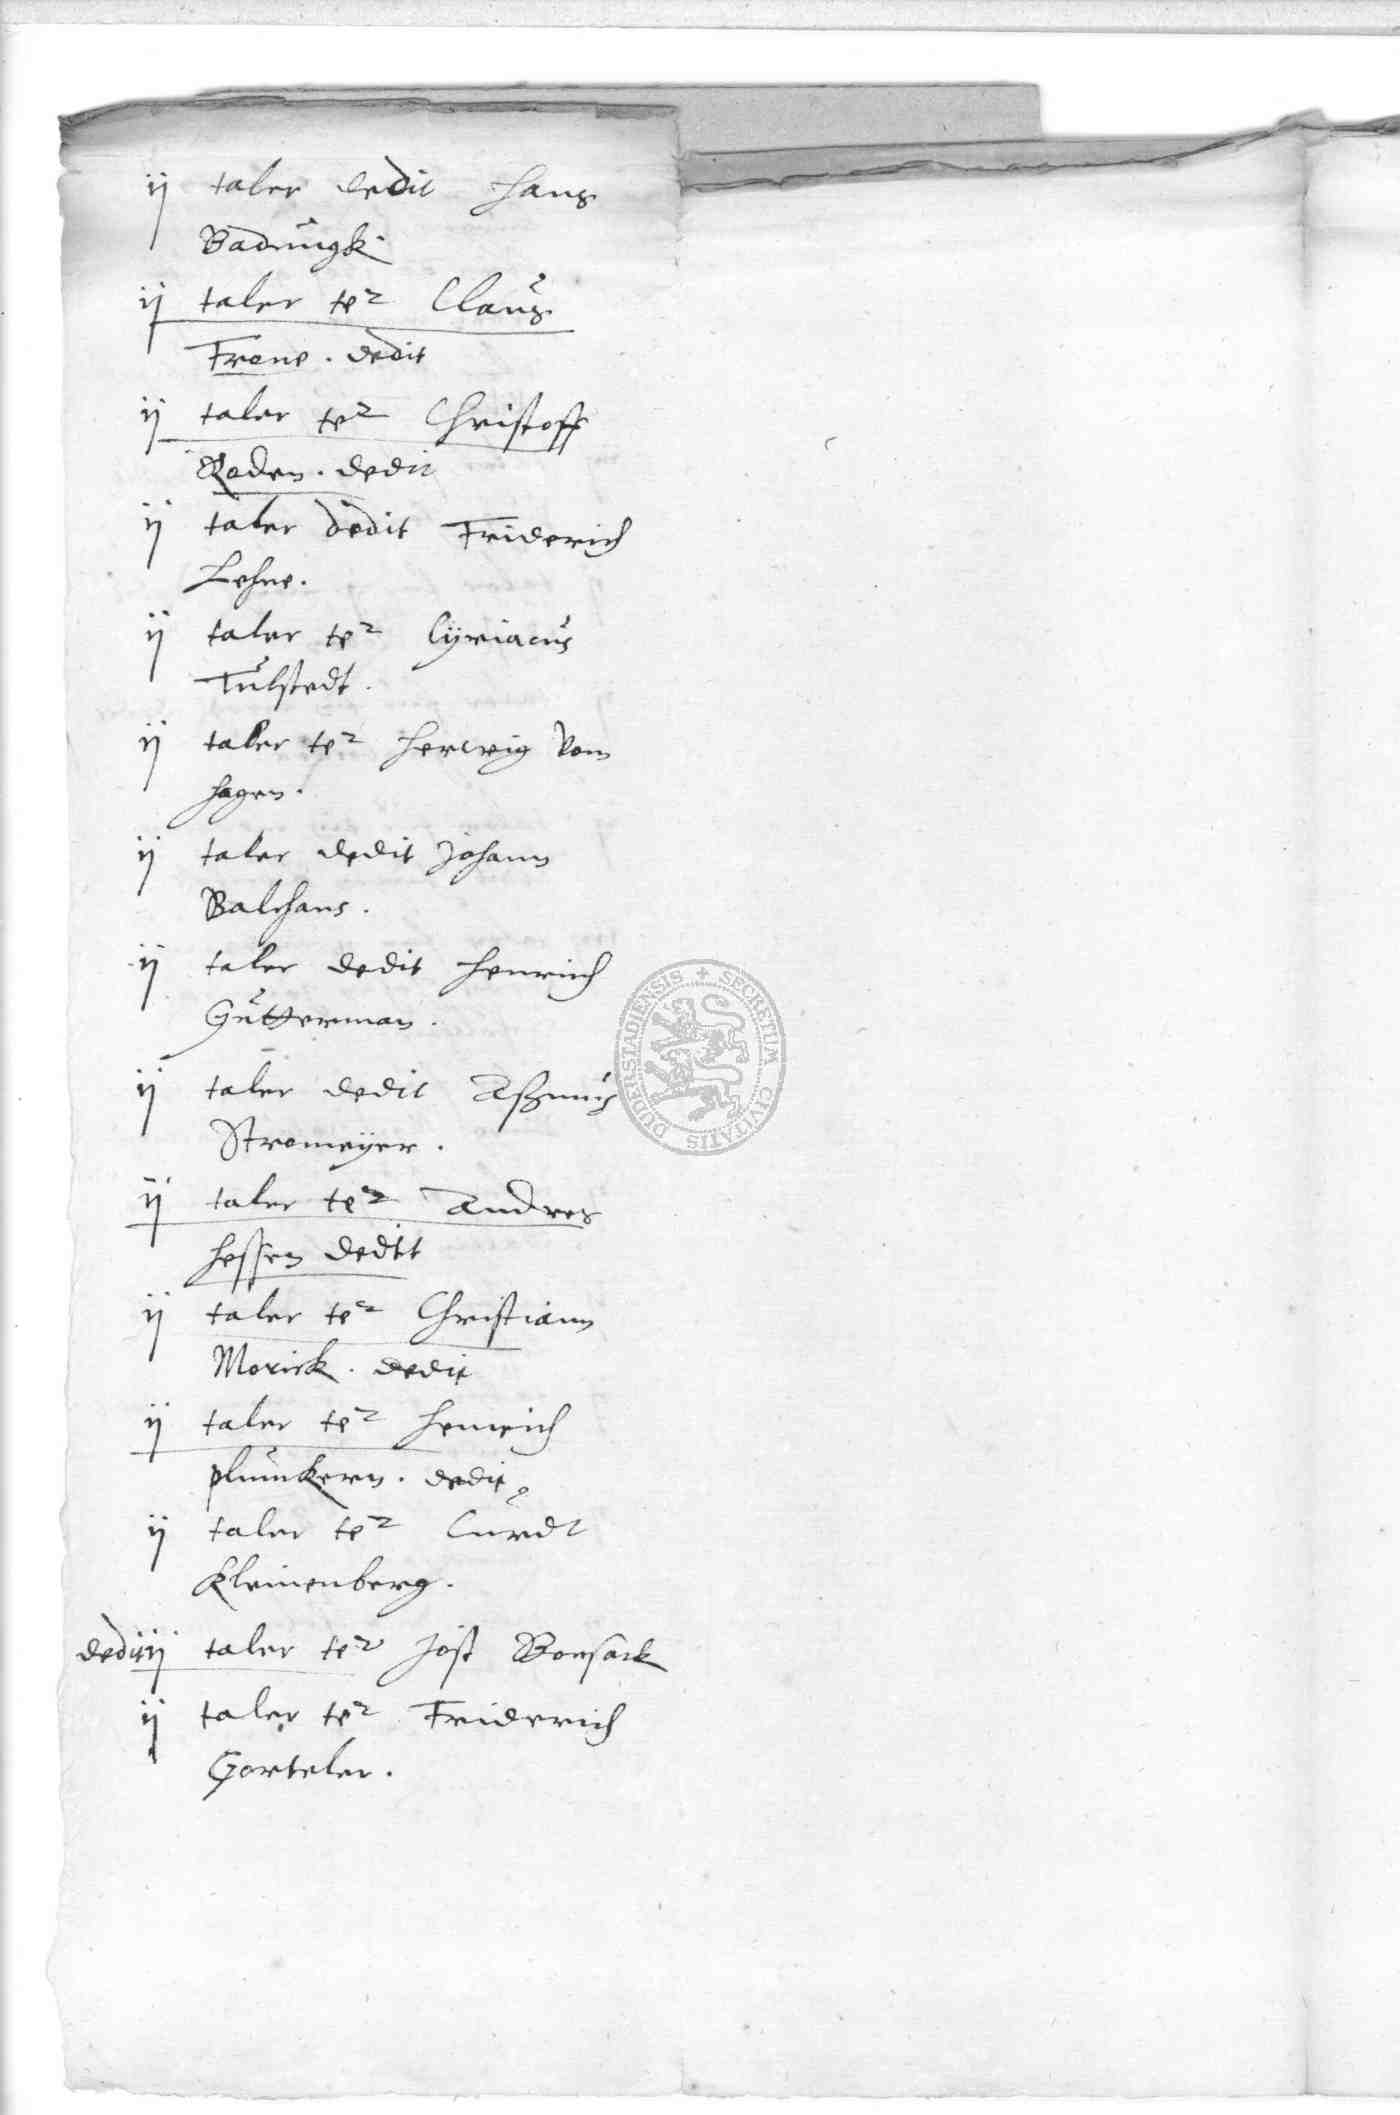 ij taler dedit Hans
Badungk
ij taler te² Claus
Frone . dedit
ij taler te² Christoff
Roden . dedit
ij taler dedit Friderich
Lehne .
ij taler te² Cyriacus
Tulstedt .
ij taler te² Herwig vom
Hagen .
ij taler dedit Johann
Balchans .
ij taler dedit Henrich
Gutterman .
ij taler dedit Aßmus
Stromeyer .
ij taler te² Andres
Hessen dedit
ij taler te² Christiann
Morick . dedit
ij taler te² Henrich
plunckern . dedit
ij taler te² Curdt
Kleinenberg .
dedit ij taler te² Jost Bonsack
ij taler te² Friderich
Gorteler .
SECRETUM CIVITATIS DUDERSTADIENSIS